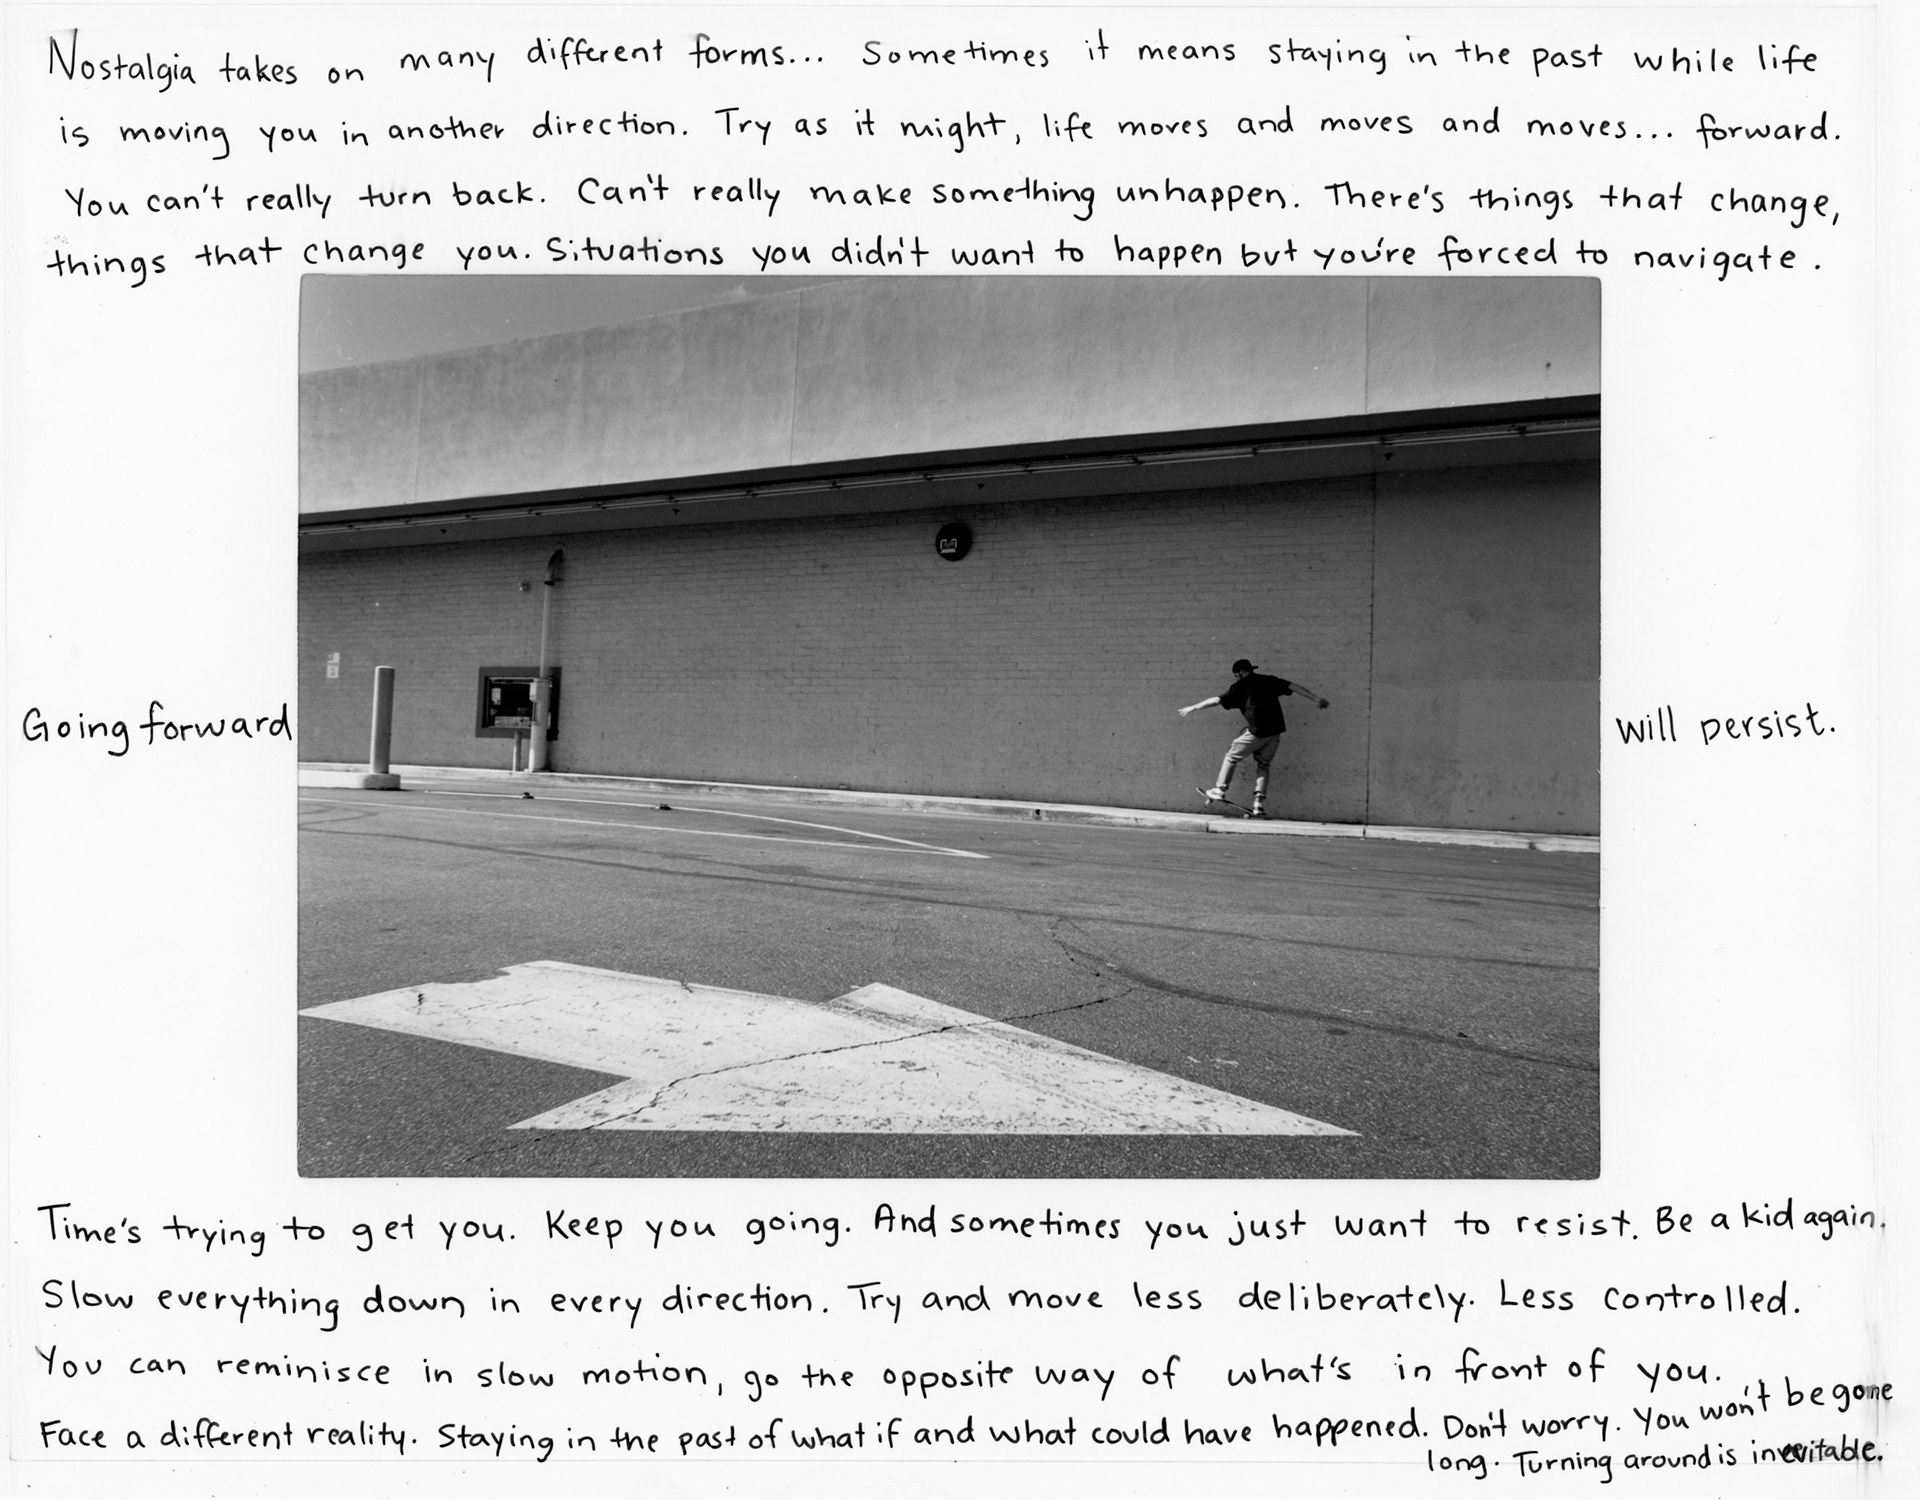 Nostalgia takes on many different forms... Sometimes it means staying in the past while life
is moving you in another direction. Try as it might, life moves and moves and moves... forward.
You can't really turn back. Can't really make something unhappen. There's things that change,
things that change you. Situations you didn't want to happen but you're forced to navigate.
Going forward will persist.
Time's trying to get you. Keep you going. And sometimes you just want to resist. Be a kid again.
Slow everything down in every direction. Try and move less deliberately. Less controlled.
You can reminisce in slow motion, go the opposite way of what's in front of you.
Face a different reality. Staying in the past of what if and what could have happened. Don't worry. You won't be gone
long. Turning around is inevitable.